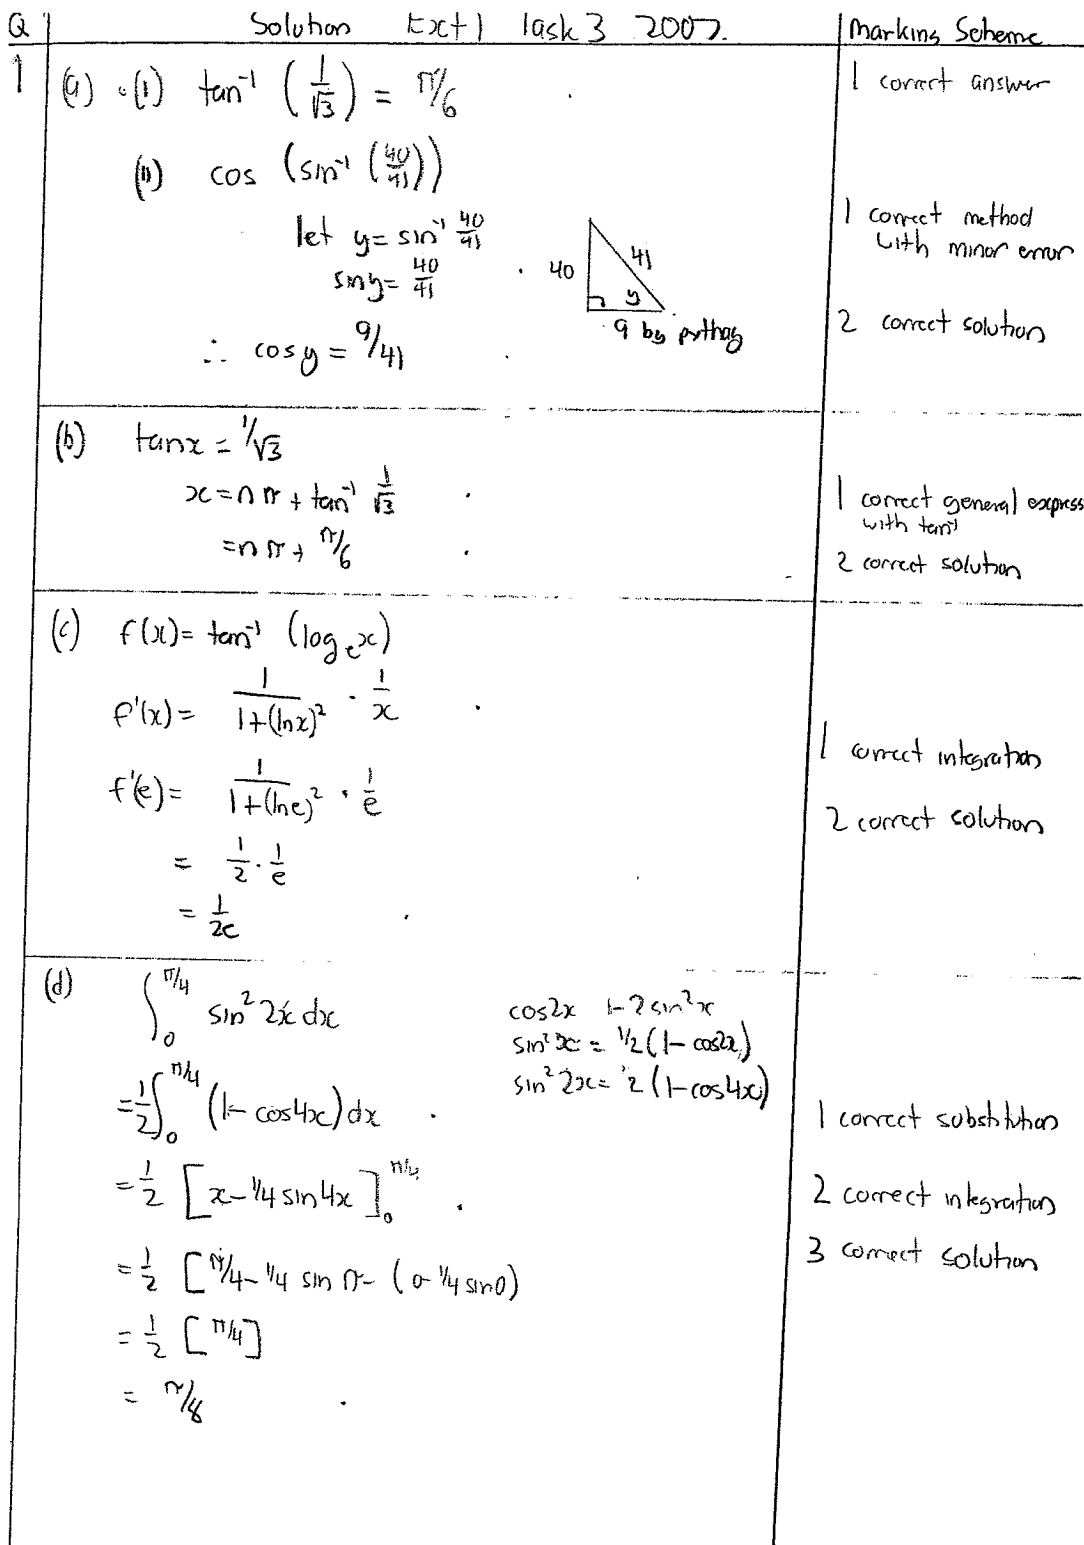 Q Solution Ext 1 Task 3 2007. Marking Scheme
1 (a) (i) tan⁻¹ (1/√3) = π/6
1 correct answer
(ii) cos (sin⁻¹ (40/41))
let y = sin⁻¹ 40/41
sin y = 40/41
40 41 y
9 by pythag
∴ cos y = 9/41
1 correct method
with minor error
2 correct solution
(b) tan x = 1/√3
x = nπ + tan⁻¹ 1/√3
= nπ + π/6
1 correct general express
with tan⁻¹
2 correct solution
(c) f(x) = tan⁻¹ (logₑx)
f'(x) = 1/(1+(lnx)²) · 1/x
f'(e) = 1/(1+(lne)²) · 1/e
= 1/2 · 1/e
= 1/2e
1 correct integration
2 correct solution
(d) ∫₀^π/4 sin² 2x dx
cos2x 1-2sin²x
sin²x = 1/2(1-cos2x)
sin²2x = 1/2(1-cos4x)
= 1/2 ∫₀^π/4 (1-cos4x) dx
= 1/2 [x - 1/4 sin4x]₀^π/4
= 1/2 [π/4 - 1/4 sin π - (0 - 1/4 sin0)
= 1/2 [π/4]
= π/8
1 correct substitution
2 correct integration
3 correct solution